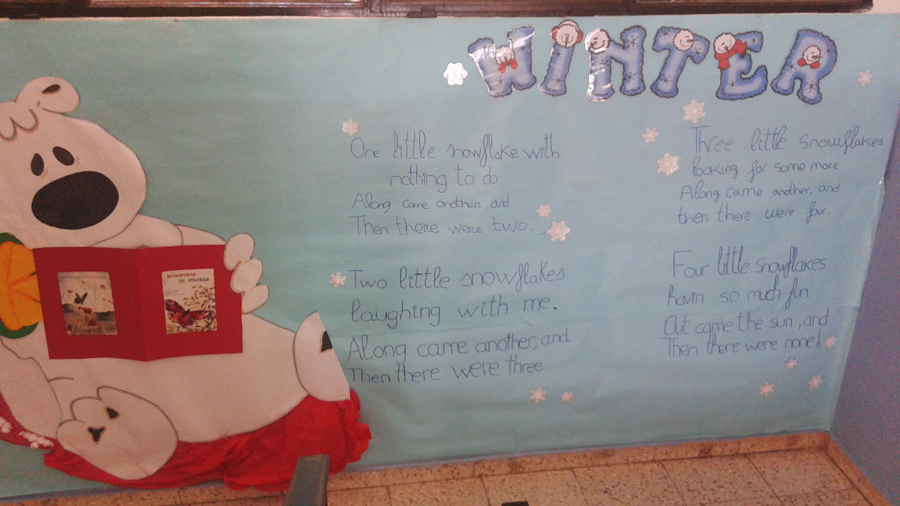 WINTER
One little snowflake with
nothing to do
Along came another and
Then there were two.
Two little snowflakes
laughing with me.
Along came another, and
Then there were three
Three little snowflakes
looking for some more
Along came another, and
then there were four.
Four little snowflakes
havin so much fun
Out came the sun, and
Then there were none!